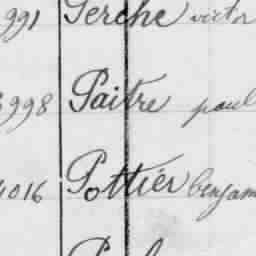 991 Perche victor
998 Paitre paul
4016 Pottier benjam